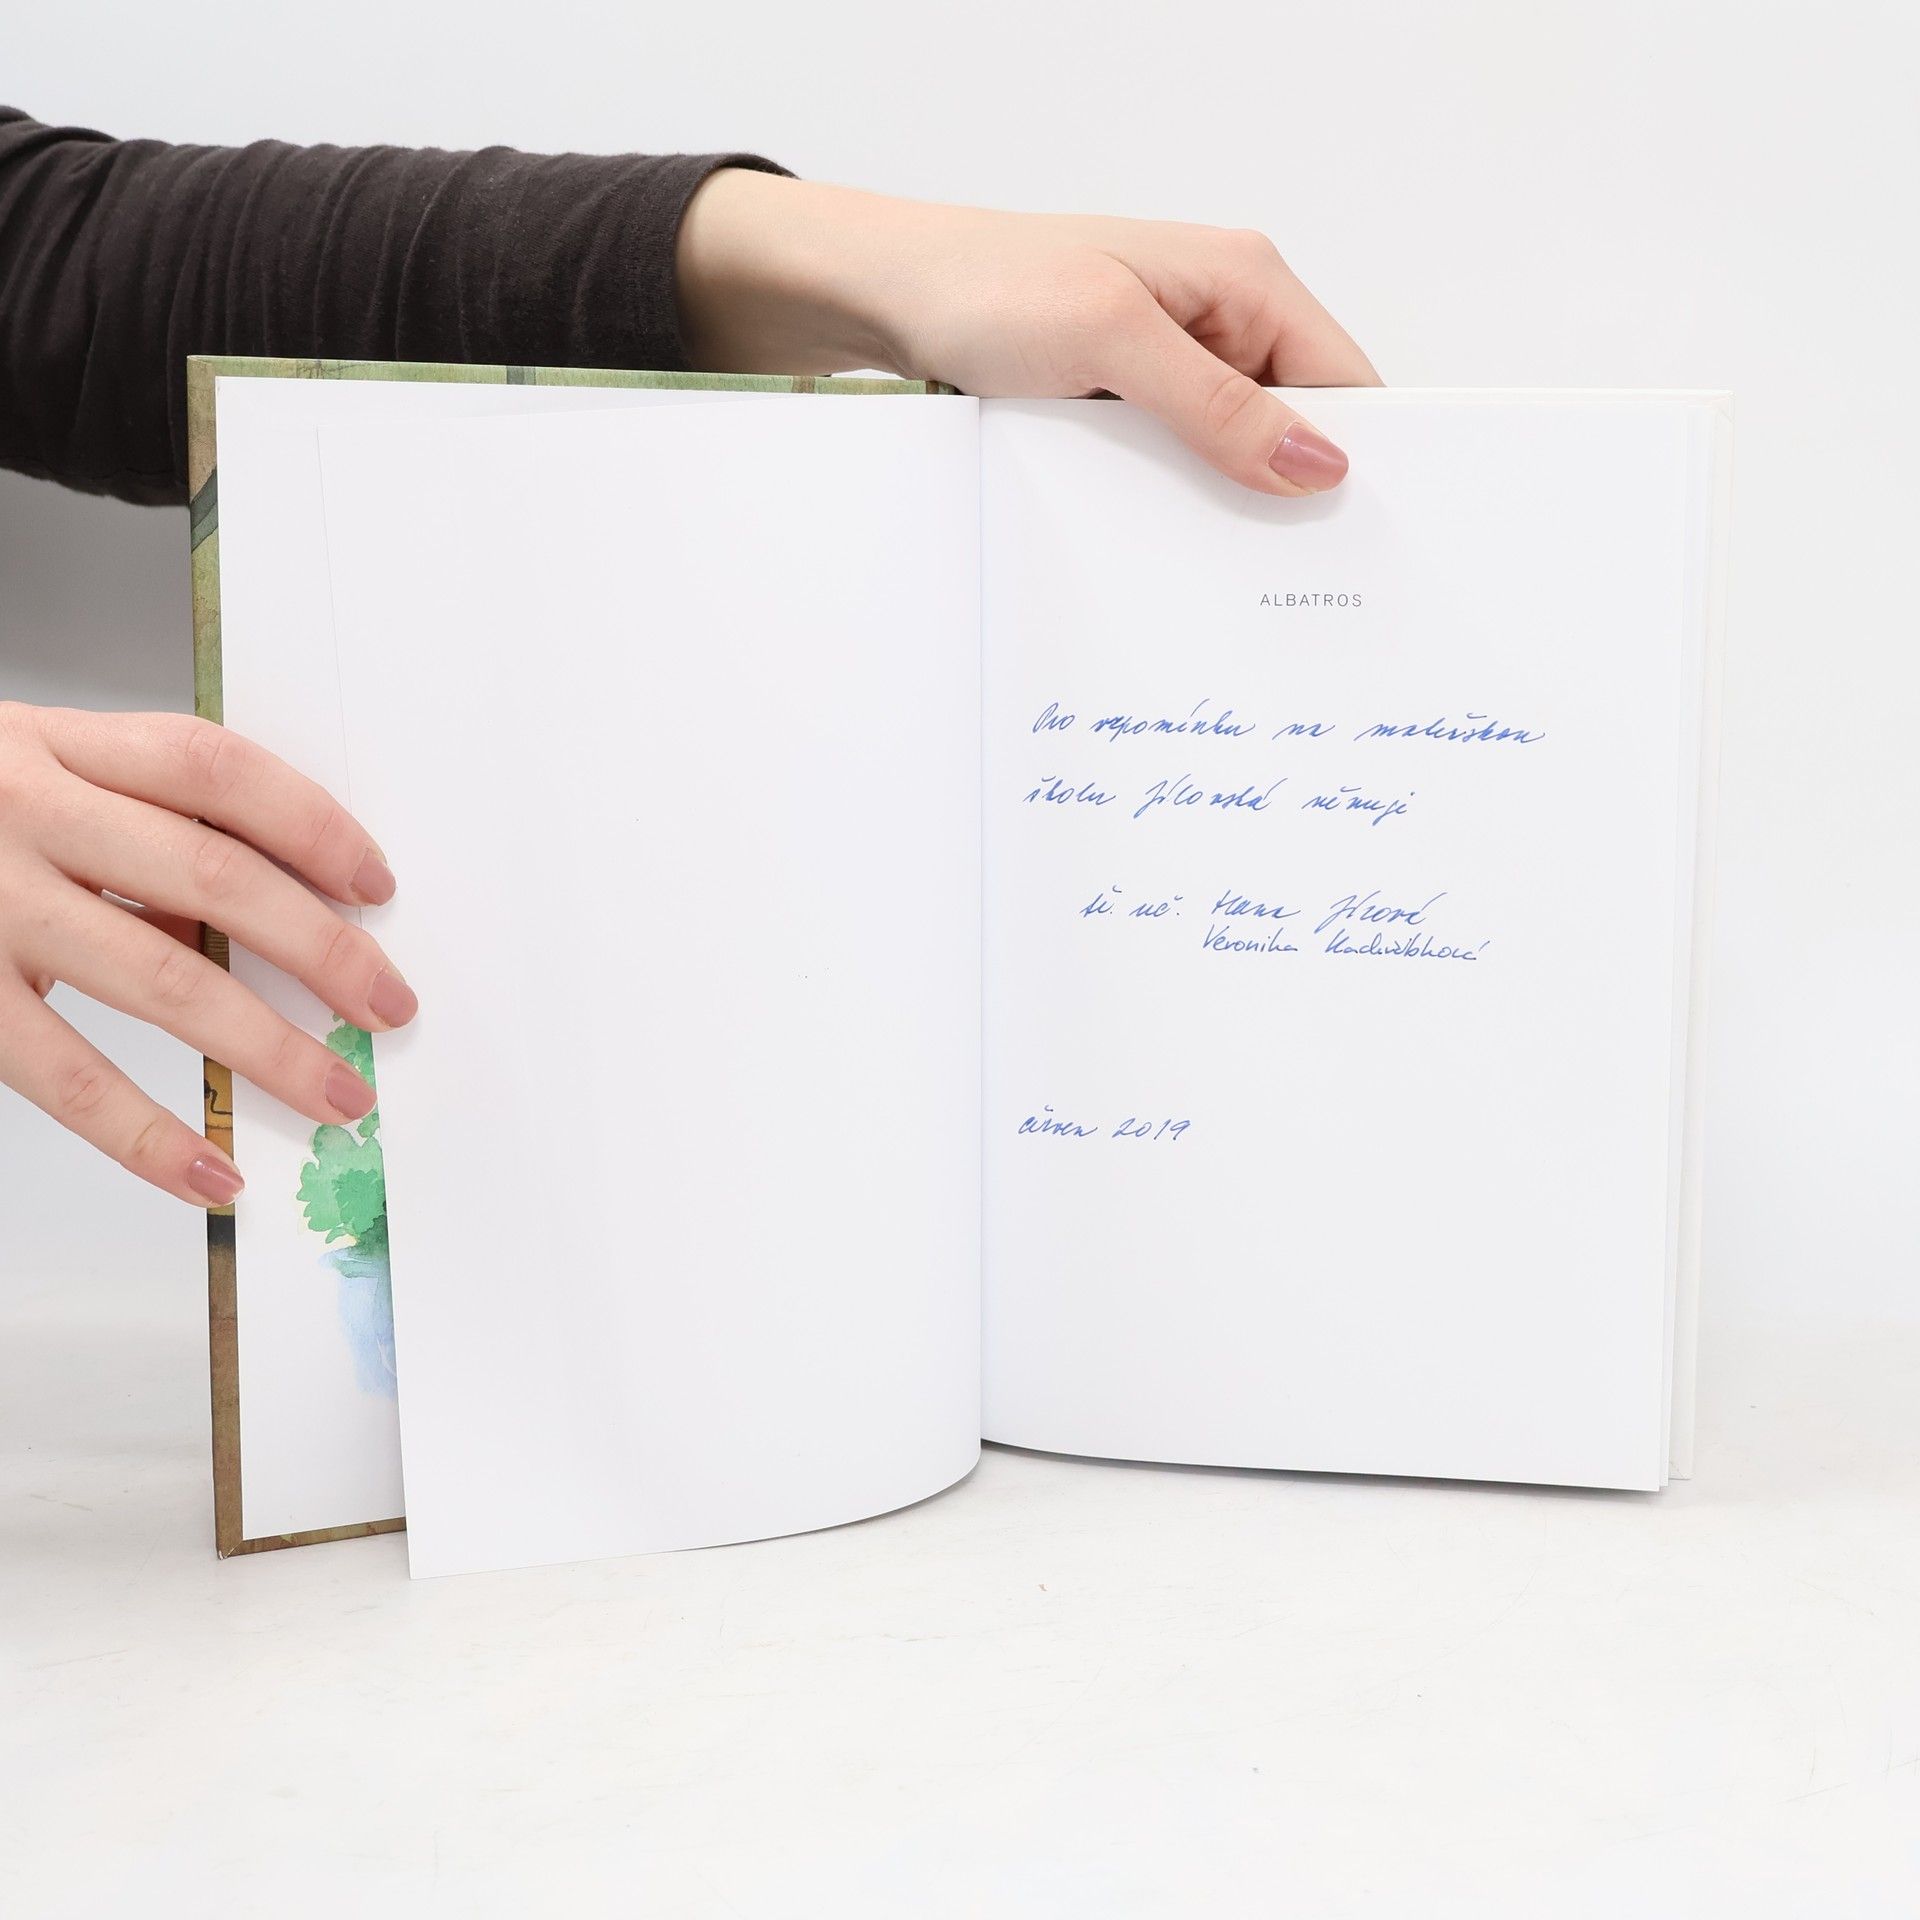 ALBATROS
Pro vzpomínku na mateřskou
školu Jílovská věnuje
tř. uč. Hana Jírová
Veronika
červen 2019